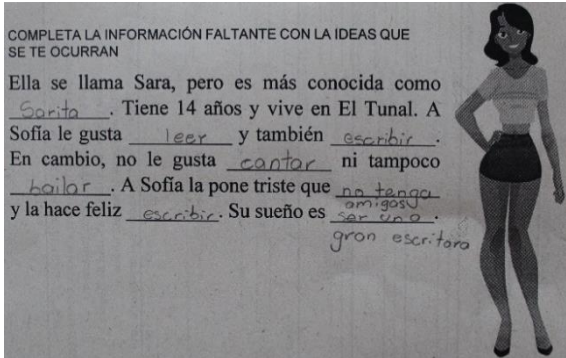 COMPLETA LA INFORMACIÓN FALTANTE CON LA IDEAS QUE
SE TE OCURRAN
Ella se llama Sara, pero es más conocida como
Sarita. Tiene 14 años y vive en El Tunal. A
Sofía le gusta leer y también escribir.
En cambio, no le gusta cantar ni tampoco
bailar. A Sofía la pone triste que no tenga
amigos
y la hace feliz escribir. Su sueño es ser una.
gran escritora